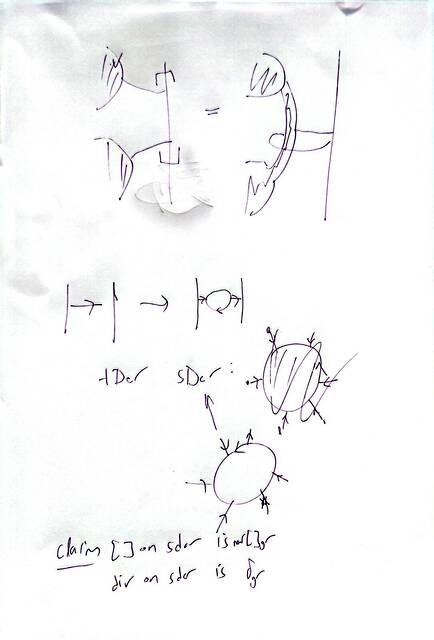 =
tDer sDer :
claim [ ] on sder is [ ]gr
div on sder is δgr